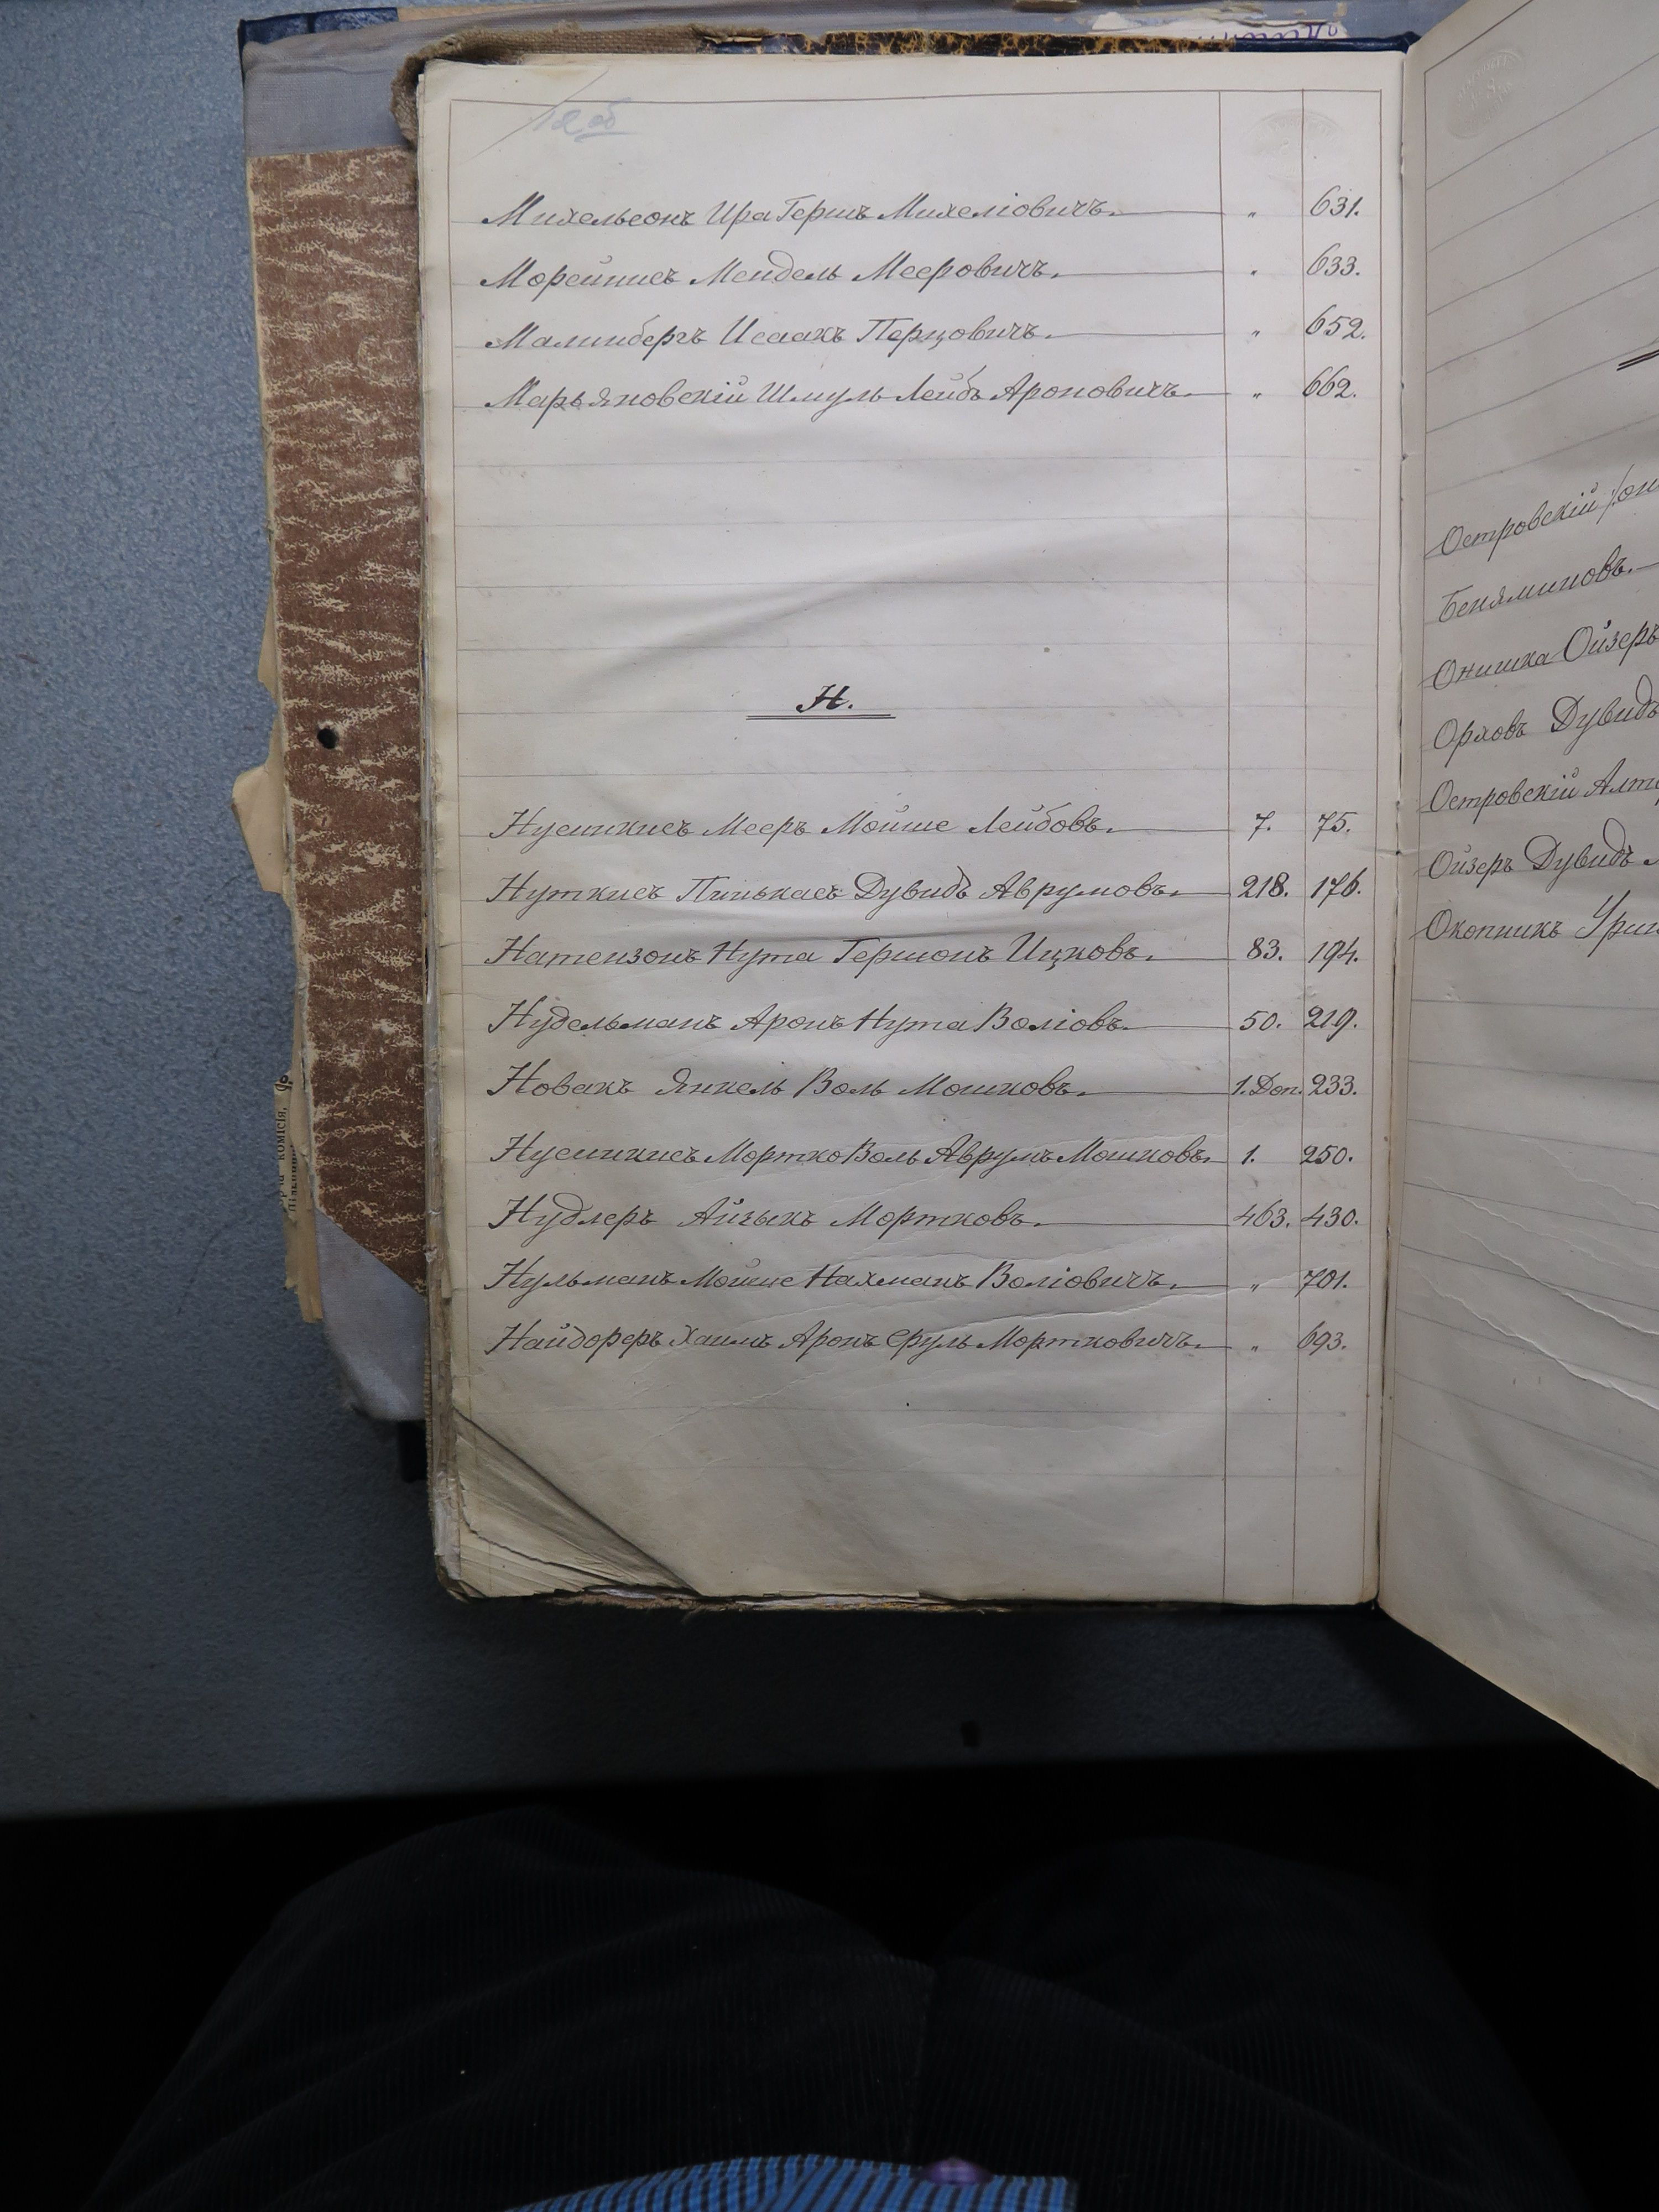 12 об
Михельсонъ Ира Гершъ Михеліовичъ. „ 631.
Морейнисъ Мендель Мееровичъ. „ 633.
Малинбергъ Исаакъ Перцовичъ. „ 652.
Марьяновскій Шмуль Лейбъ Ароновичъ. „ 662.
Н.
Нусинкисъ Мееръ Мойше Лейбовъ. 7. 75.
Нуткисъ Пинькасъ Дувидъ Аврумовъ. 218. 176.
Натензонъ Нута Гершонъ Ицковъ. 83. 194.
Нудельманъ Аронъ Нута Воліовъ. 50. 219.
Новакъ Янкель Воль Мошковъ. 1. Доп. 233.
Нусинкисъ Мортко Воль Аврумъ Мошковъ. 1. 250.
Нудлеръ Айзыкъ Мортковъ. 463. 430.
Нульманъ Мойше Нахманъ Воліовичъ. „ 701.
Найдорферъ Хаимъ Аронъ Сруль Мортковичъ. „ 693.
Островскій
Беняминовъ.
Онишка Ойзеръ
Орловъ Дувидъ
Островскій
Ойзеръ Дувидъ
Окопникъ
комісія,